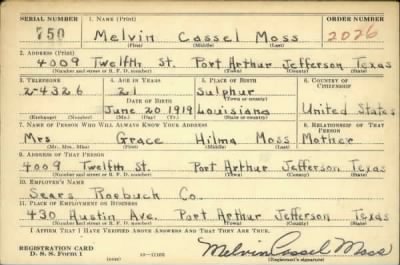 SERIAL NUMBER 1. NAME (Print) ORDER NUMBER
750 Melvin Cassel Moss 2026
(First) (Middle) (Last)
2. ADDRESS (Print)
4009 Twelfth St. Port Arthur Jefferson Texas
(Number and street or R. F. D. number) (Town) (County) (State)
3. TELEPHONE 4. AGE IN YEARS 5. PLACE OF BIRTH 6. COUNTRY OF CITIZENSHIP
2-4326 21 Sulphur
DATE OF BIRTH (Town or county)
June 20 1919 Louisiana United States
(Exchange) (Number) (Mo.) (Day) (Yr.) (State or country)
7. NAME OF PERSON WHO WILL ALWAYS KNOW YOUR ADDRESS 8. RELATIONSHIP OF THAT PERSON
Mrs Grace Hilma Moss Mother
(Mr., Mrs., Miss) (First) (Middle) (Last)
9. ADDRESS OF THAT PERSON
4009 Twelfth St. Port Arthur Jefferson Texas
(Number and street or R. F. D. number) (Town) (County) (State)
10. EMPLOYER'S NAME
Sears Roebuck Co.
11. PLACE OF EMPLOYMENT OR BUSINESS
430 Austin Ave. Port Arthur Jefferson Texas
(Number and street or R. F. D. number) (Town) (County) (State)
I AFFIRM THAT I HAVE VERIFIED ABOVE ANSWERS AND THAT THEY ARE TRUE.
REGISTRATION CARD
D. S. S. FORM 1 (over) Melvin Cassel Moss
(Registrant's signature)